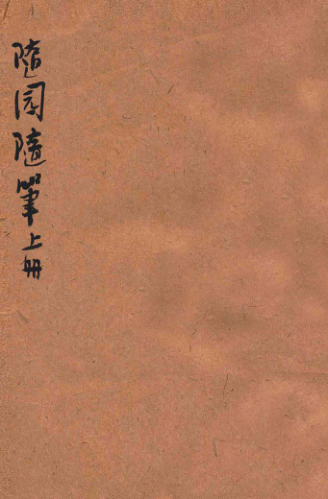 隨园隨筆上册